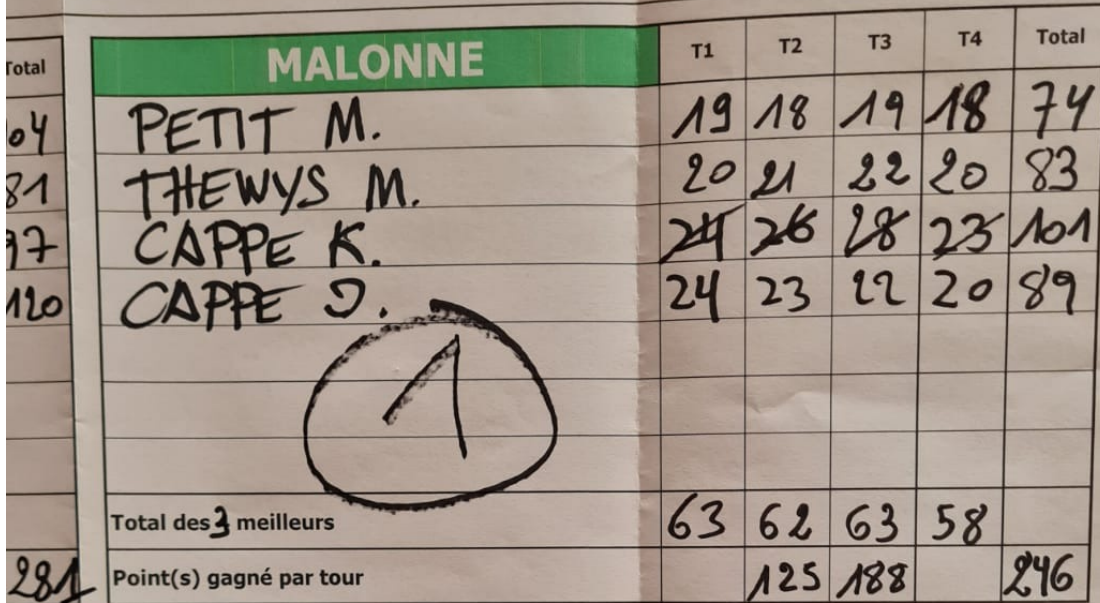 Total MALONNE T1 T2 T3 T4 Total
104 PETIT M. 19 18 19 18 74
81 THEWYS M. 20 21 22 20 83
97 CAPPE K. 24 26 28 23 101
120 CAPPE J. 24 23 22 20 89
1
Total des 3 meilleurs 63 62 63 58
281 Point(s) gagné par tour 125 188 246